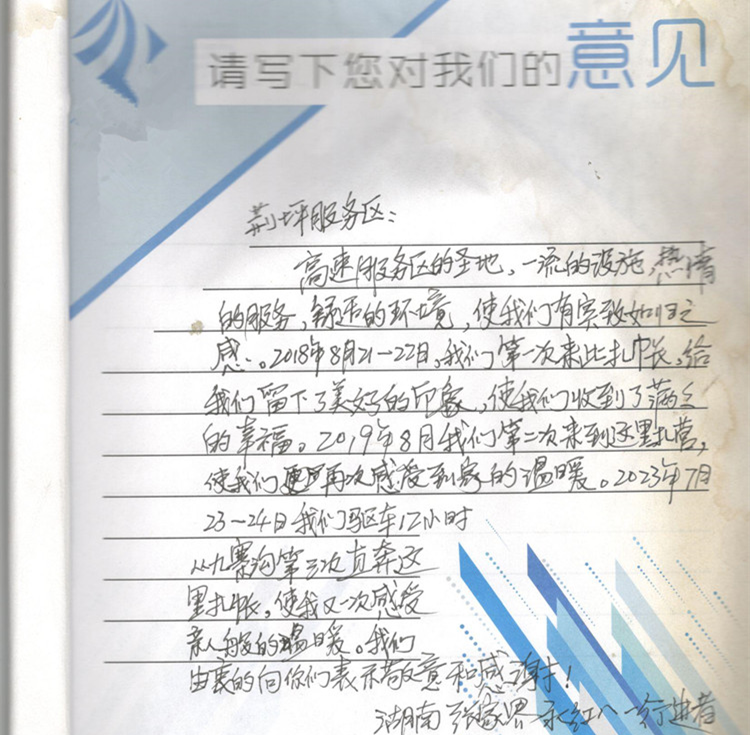 请写下您对我们的意见
荆坪服务区：
高速服务区的圣地，一流的设施，热情
的服务，舒适的环境，使我们有宾致如归之
感。2018年8月21-22日，我们第一次来此扎帐，给
我们留下了美好的印象，使我们收到了满之
的幸福。2019年8月我们第二次来到这里扎营，
使我们再次感受到家的温暖。2023年7月
23-24日我们驱车12小时
从九寨沟第三次直奔这
里扎帐，使我又一次感受
亲人般的温暖。我们
由衷的向你们表示敬意和感谢！
湖南张家界 永红八一行进者